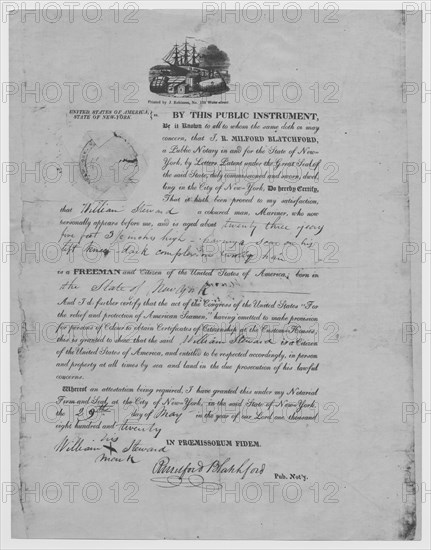 Printed by J. Robinson, No.
UNITED STATES OF AMERICA,
STATE OF NEW-YORK
BY THIS PUBLIC INSTRUMENT,
Be it Known to all to whom the same doth or may
concern, that I, R. MILFORD BLATCHFORD,
a Public Notary in and for the State of New-
York, by Letters Patent under the Great Seal of
the said State, duly commissioned and sworn, dwel-
ling in the City of New-York, Do hereby Certify,
That it hath been proved to my satisfaction,
that William Steward a coloured man, Mariner, who now
personally appears before me, and is aged about twenty three years
five feet inches high, has a scar on his
left knee dark complexion woolly hair
is a FREEMAN and Citizen of the United States of America, born in
the State of New York
And I do further certify that the act of the Congress of the United States "For
the relief and protection of American Seamen," having omitted to make provision
for persons of Colour to obtain Certificates of Citizenship at the Custom-Houses,
this is granted to shew that the said William Steward is a Citizen
of the United States of America, and entitled to be respected accordingly, in person
and property at all times by sea and land in the due prosecution of his lawful
concerns.
Whereof an attestation being required, I have granted this under my Notarial
Form and Seal, at the City of New-York, in the said State of New-York,
the 29th day of May in the year of our Lord one thousand
eight hundred and twenty
IN PRÆMISSORUM FIDEM.
his
William X Steward
mark
Blatchford
Pub. Not'y.
PHOTO12